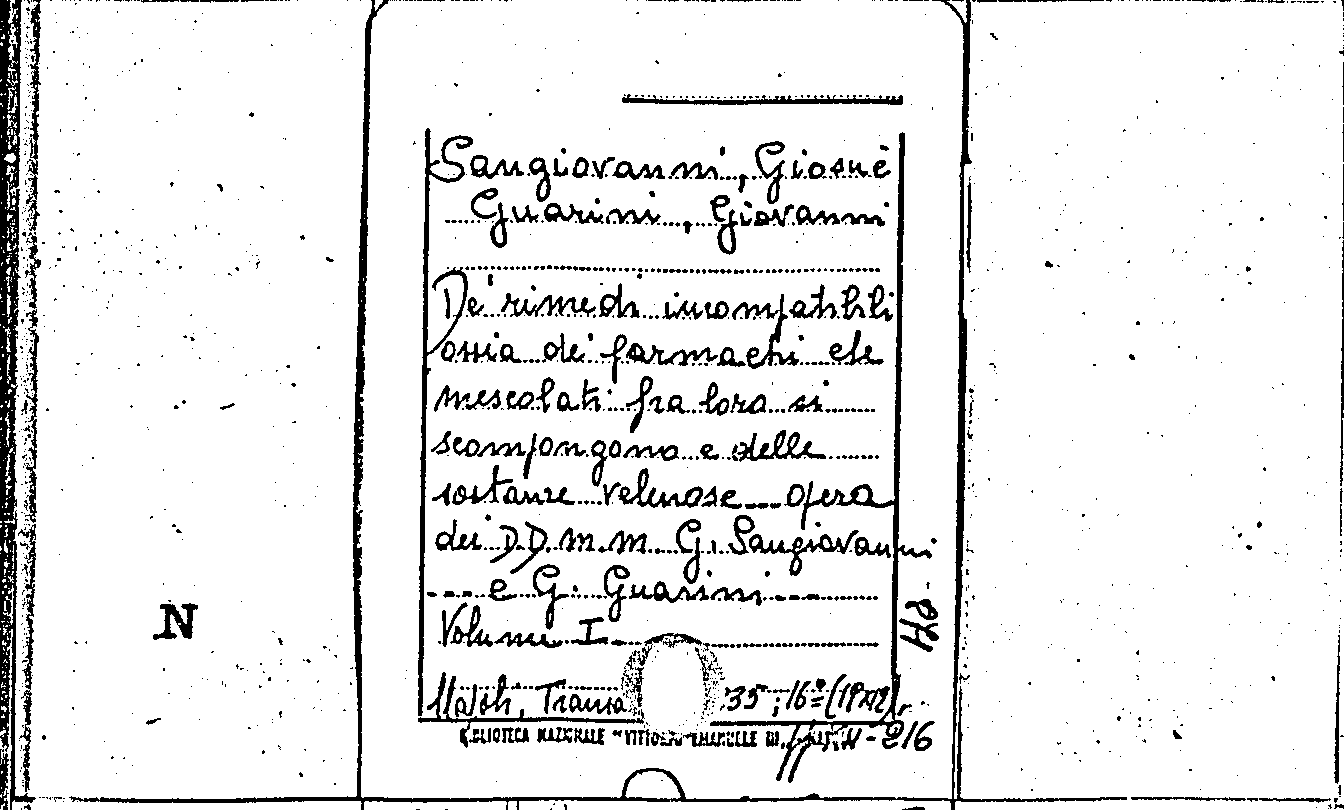 Sangiovanni, Giosuè
Guarini, Giovanni
De' rimedi incompatibili
ossia dei farmachi che
mescolati fra loro si
scompongono e delle
sostanze velenose --- opera
dei DD. m.m. G. Sangiovanni
--- e G. Guarini ---
Volume I
N
Napoli, Trama 35; 16º
BIBLIOTECA NAZIONALE "VITTORIO EMANUELE III